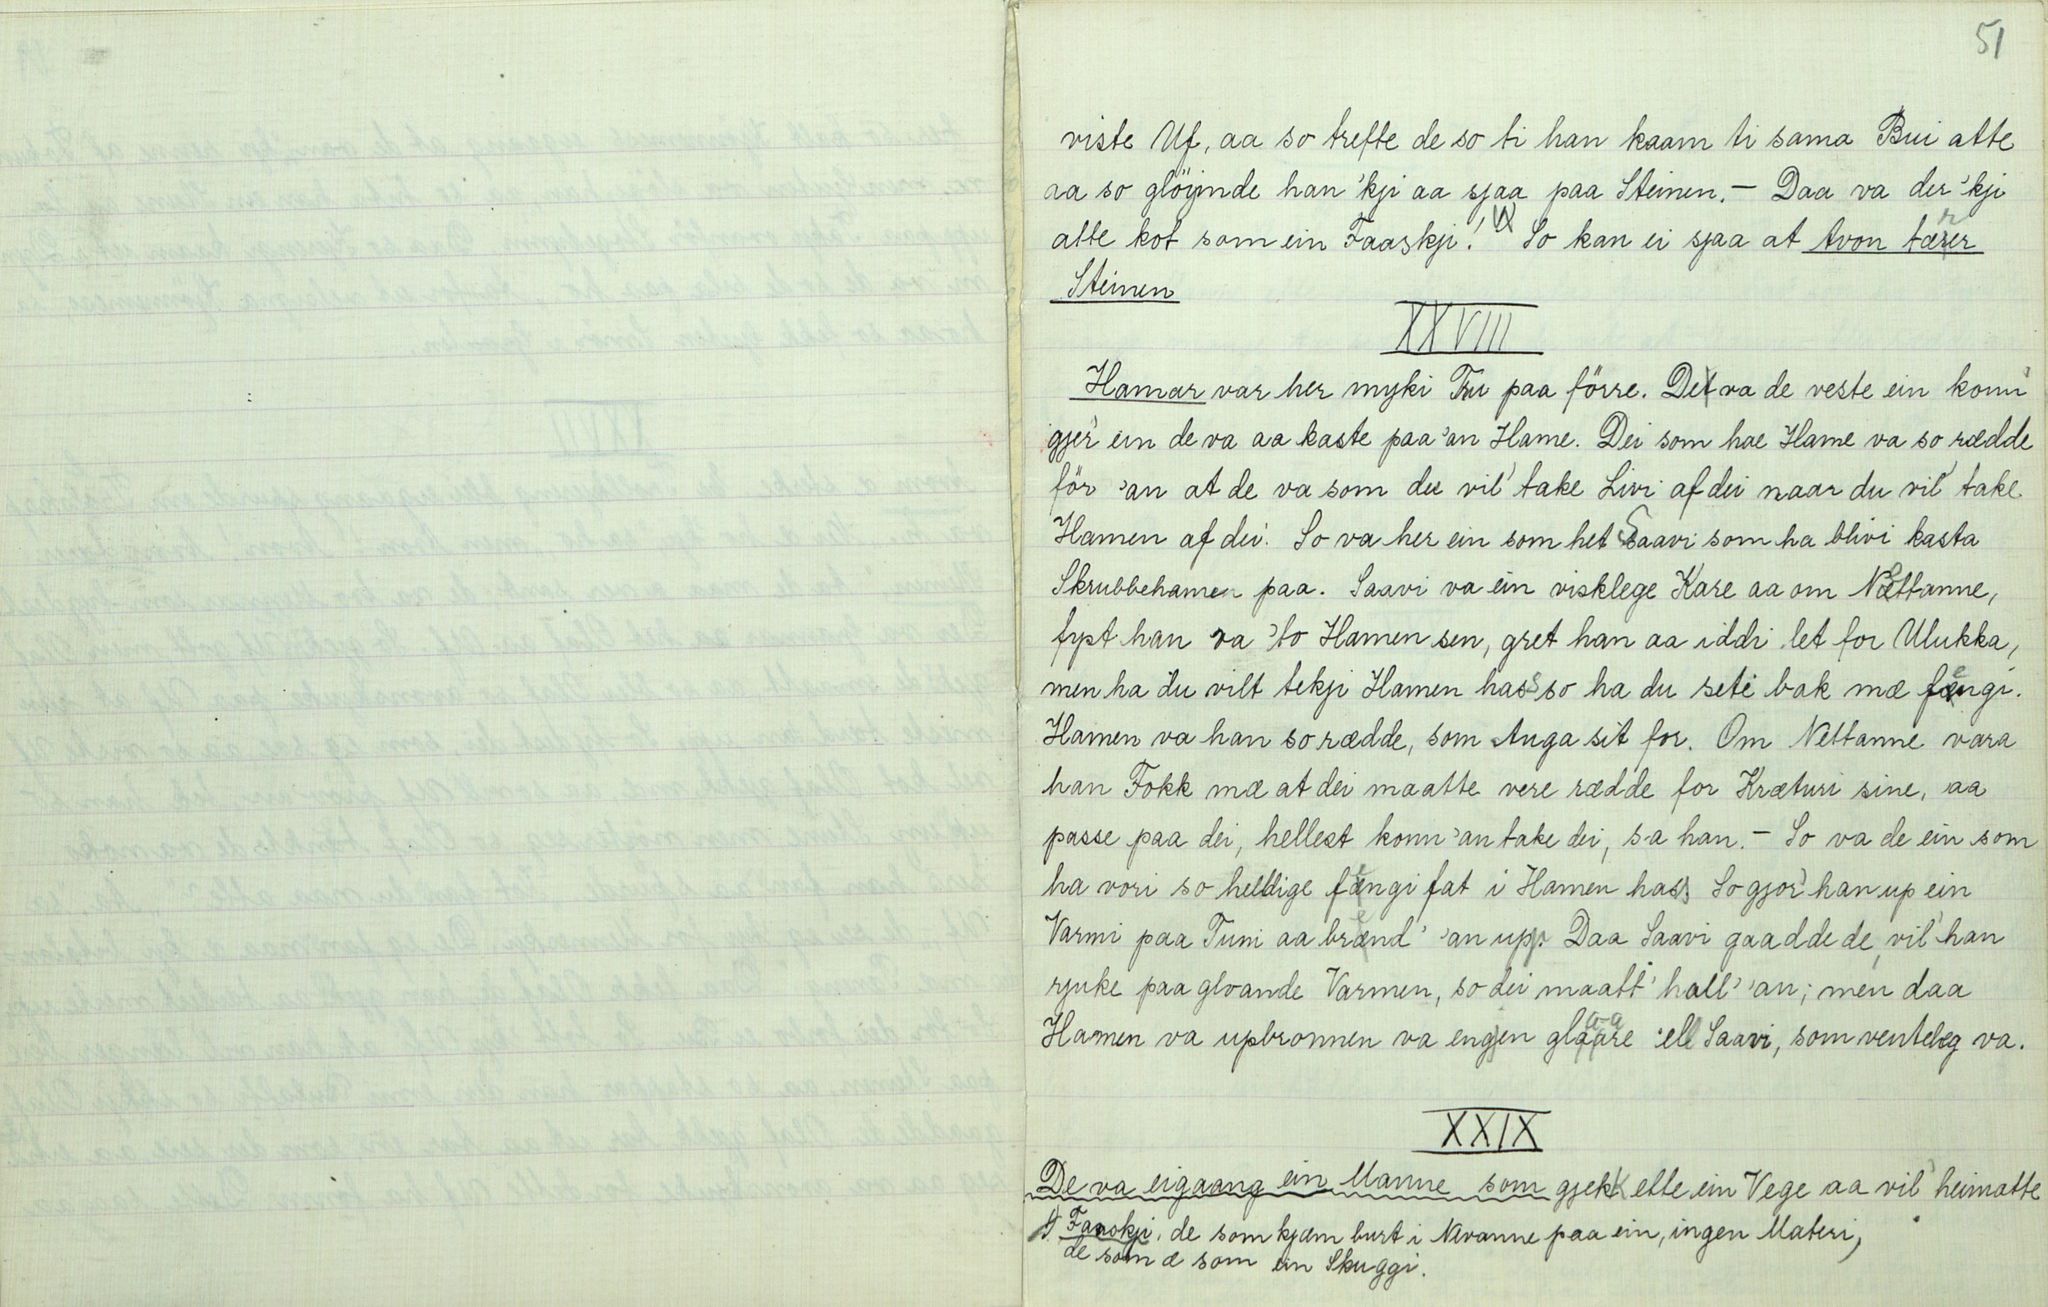 51
viste Uf, aa so trefte de so ti han kaam ti sama Bui atte
aa so glöymde han 'kji aa sjaa paa Steinen. — Daa va der 'kji
atte kot som ein Faaskji! 1) So kan ei sjaa at Avon tærer
Steinen
XXVIII
Hamar var her myki Tru paa förre. Det va de veste ein konn'
gjer' ein de va aa kaste paa 'an Hame. Dei som hae Hame va so rædde
för 'an at de va som du vil' take Livi af dei naar du vil' take
Hamen af dei. So va her ein som het Saavi som ha blivi kasta
Skrubbehamen paa. Saavi va ein visklege Kare aa om Nettanne,
fypt han va 'to Hamen sen, gret han aa iddi let for Ulukka,
men ha du vilt tekji Hamen hass so ha du seti bak mæ fengi.
Hamen va han so rædde, som Auga sit for. Om Nettanne vara
han Fokk mæ at dei maatte vere rædde for Kræturi sine, aa
passe paa dei, hellest konn 'an take dei, sa han. — So va de ein som
ha vori so heldige fengi fat i Hamen hass. So gjor' han up ein
Varmi paa Tuni aa brend' 'an upp. Daa Saavi gaadde de, vil' han
rjuke paa gloande Varmen, so dei maatt' hall' 'an; men daa
Hamen va upbronnen va engen glaare 'ell Saavi, som venteleg va.
XXIX
De va eigaang ein Manne som gjek ette ein Vege aa vil' heimatte
1) Faaskji, de som kjæm burt i Nevanne paa ein, ingen Materi,
de som æ som ein Skuggi.